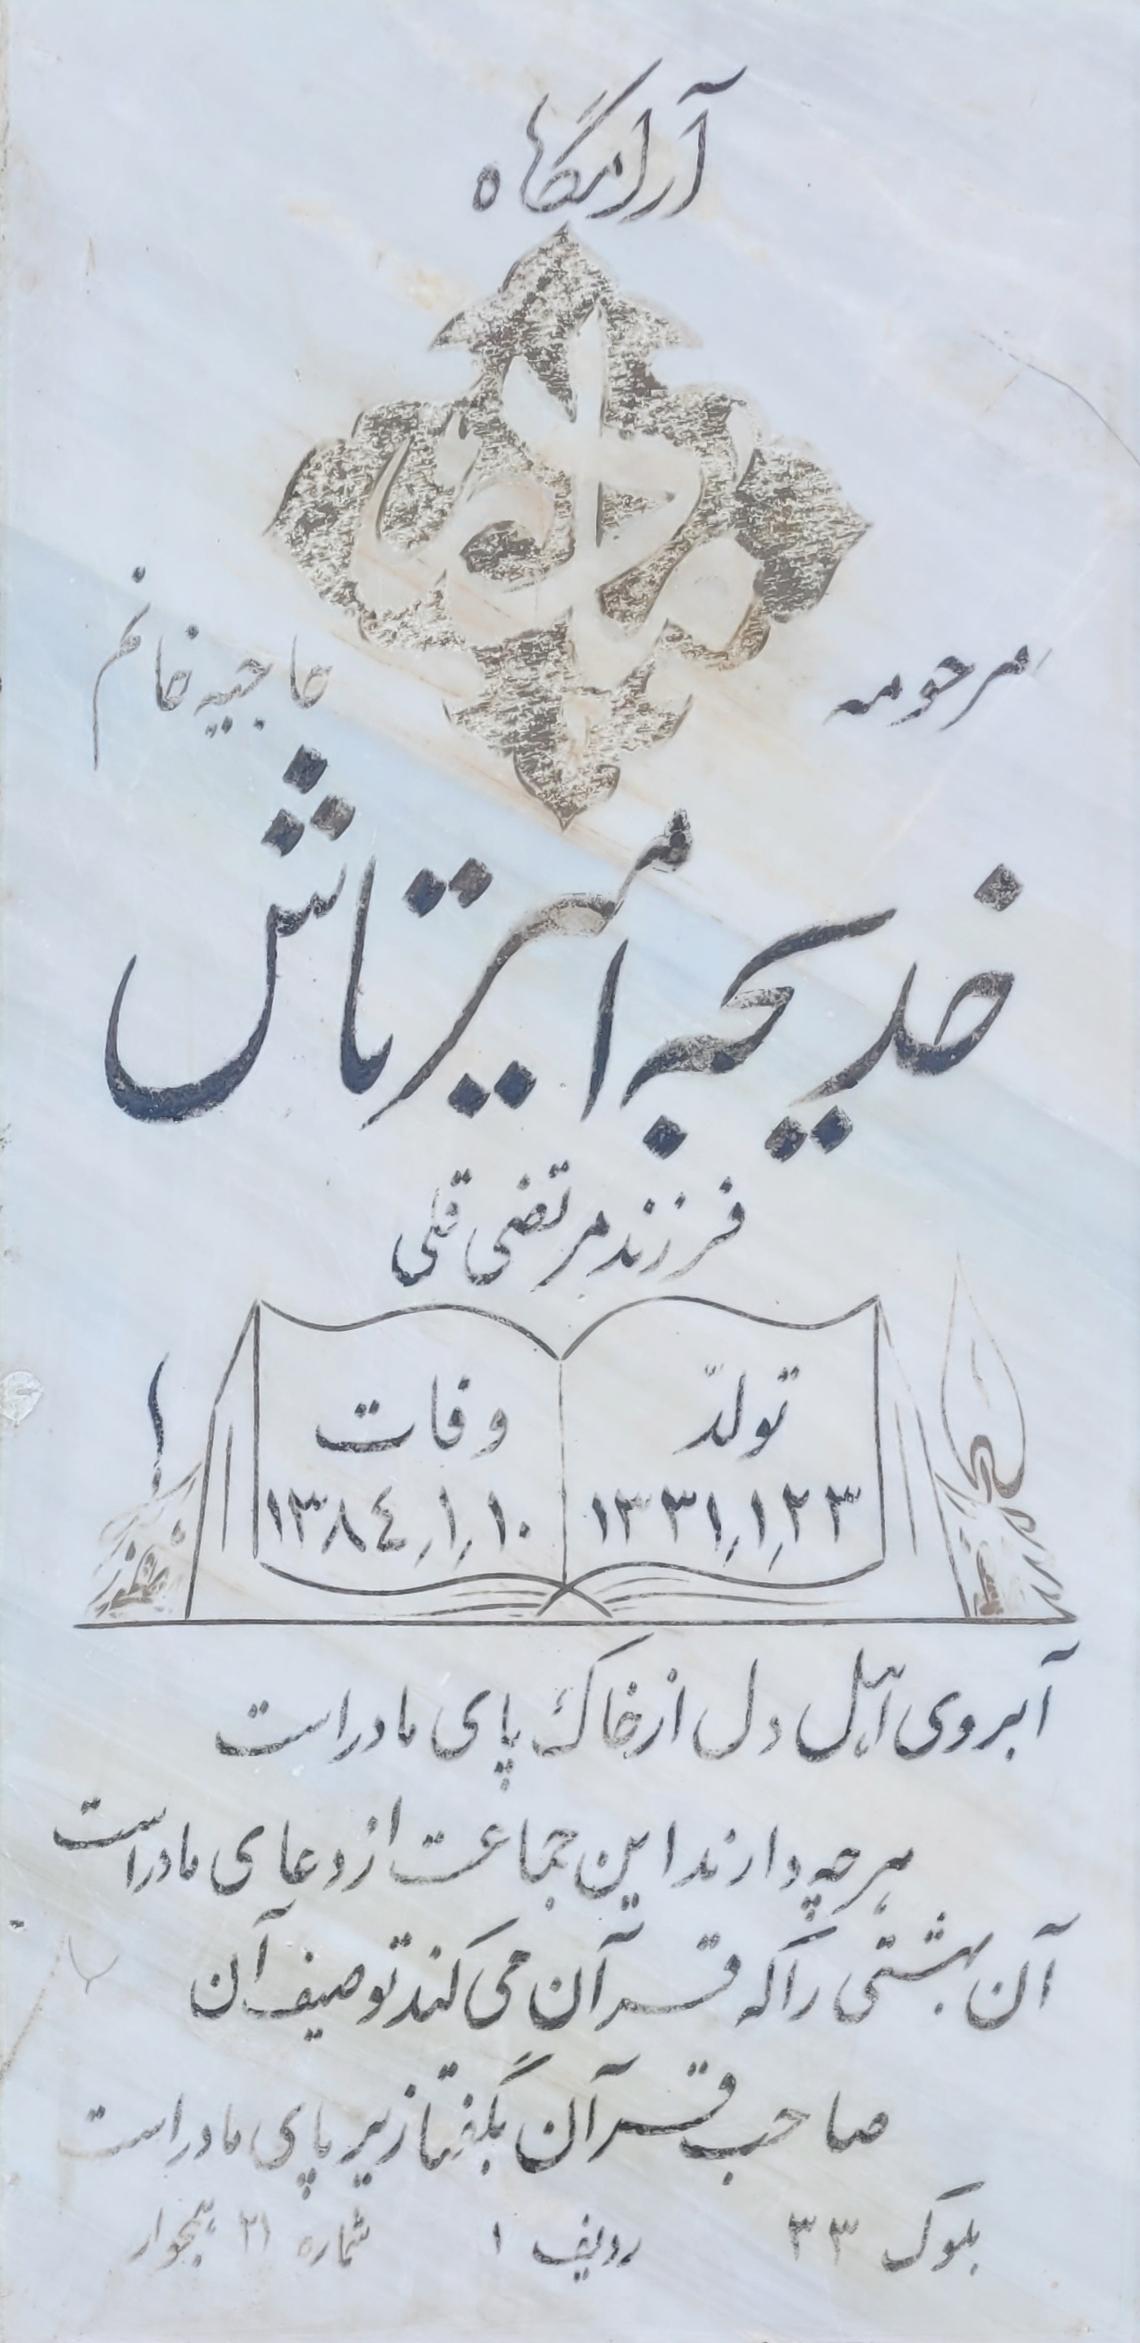 آرامگاه
مادر جان
مرحومه حاجیه خانم
خدیجه امیرتاش
فرزند مرتضی قلی
تولّد وفات
۱۳۳۱٫۱٫۲۳ ۱۳۸٤٫۱٫۱۰
آبروی اهل دل از خاک پای مادر است
هر چه دارند این جماعت از دعای مادر است
آن بهشتی را که قرآن می کند توصیف آن
صاحب قرآن بگفتا زیر پای مادر است
بلوک ۳۳ ردیف ۱ شماره ۲۱